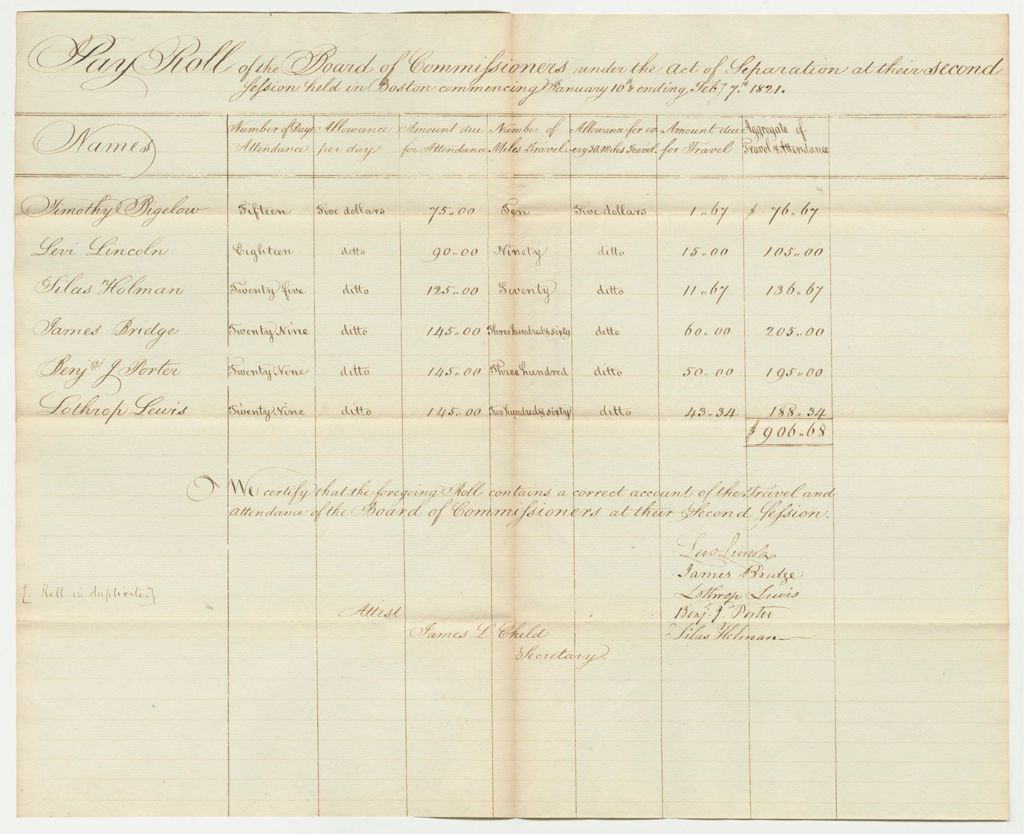 Pay Roll of the Board of Commissioners under the act of Separation at their second
Session held in Boston commencing January 10th & ending Feby 7th 1821.
Names
Number of Days Attendance
Allowance per day
Amount due for Attendance
Number of Miles Travel
Allowance for every 30 Miles Travel
Amount due for Travel
Aggregate of Travel & Attendance
Timothy Bigelow Fifteen Five dollars 75..00 Ten Five dollars 1..67 $ 76..67
Levi Lincoln Eighteen ditto 90..00 Ninety ditto 15..00 105..00
Silas Holman Twenty five ditto 125..00 Seventy ditto 11..67 136..67
James Bridge Twenty Nine ditto 145..00 Three hundred & sixty ditto 60..00 205..00
Benja J Porter Twenty Nine ditto 145..00 Three hundred ditto 50..00 195..00
Lothrop Lewis Twenty Nine ditto 145..00 Two hundred & sixty ditto 43..34 188..34
$ 906..68
We certify that the foregoing Roll contains a correct account of the Travel and
attendance of the Board of Commissioners at their Second Session.
Levi Lincoln
James Bridge
Lothrop Lewis
Benj. J. Porter
Silas Holman
[Roll in duplicate.]
Attest
James L Child
Secretary.